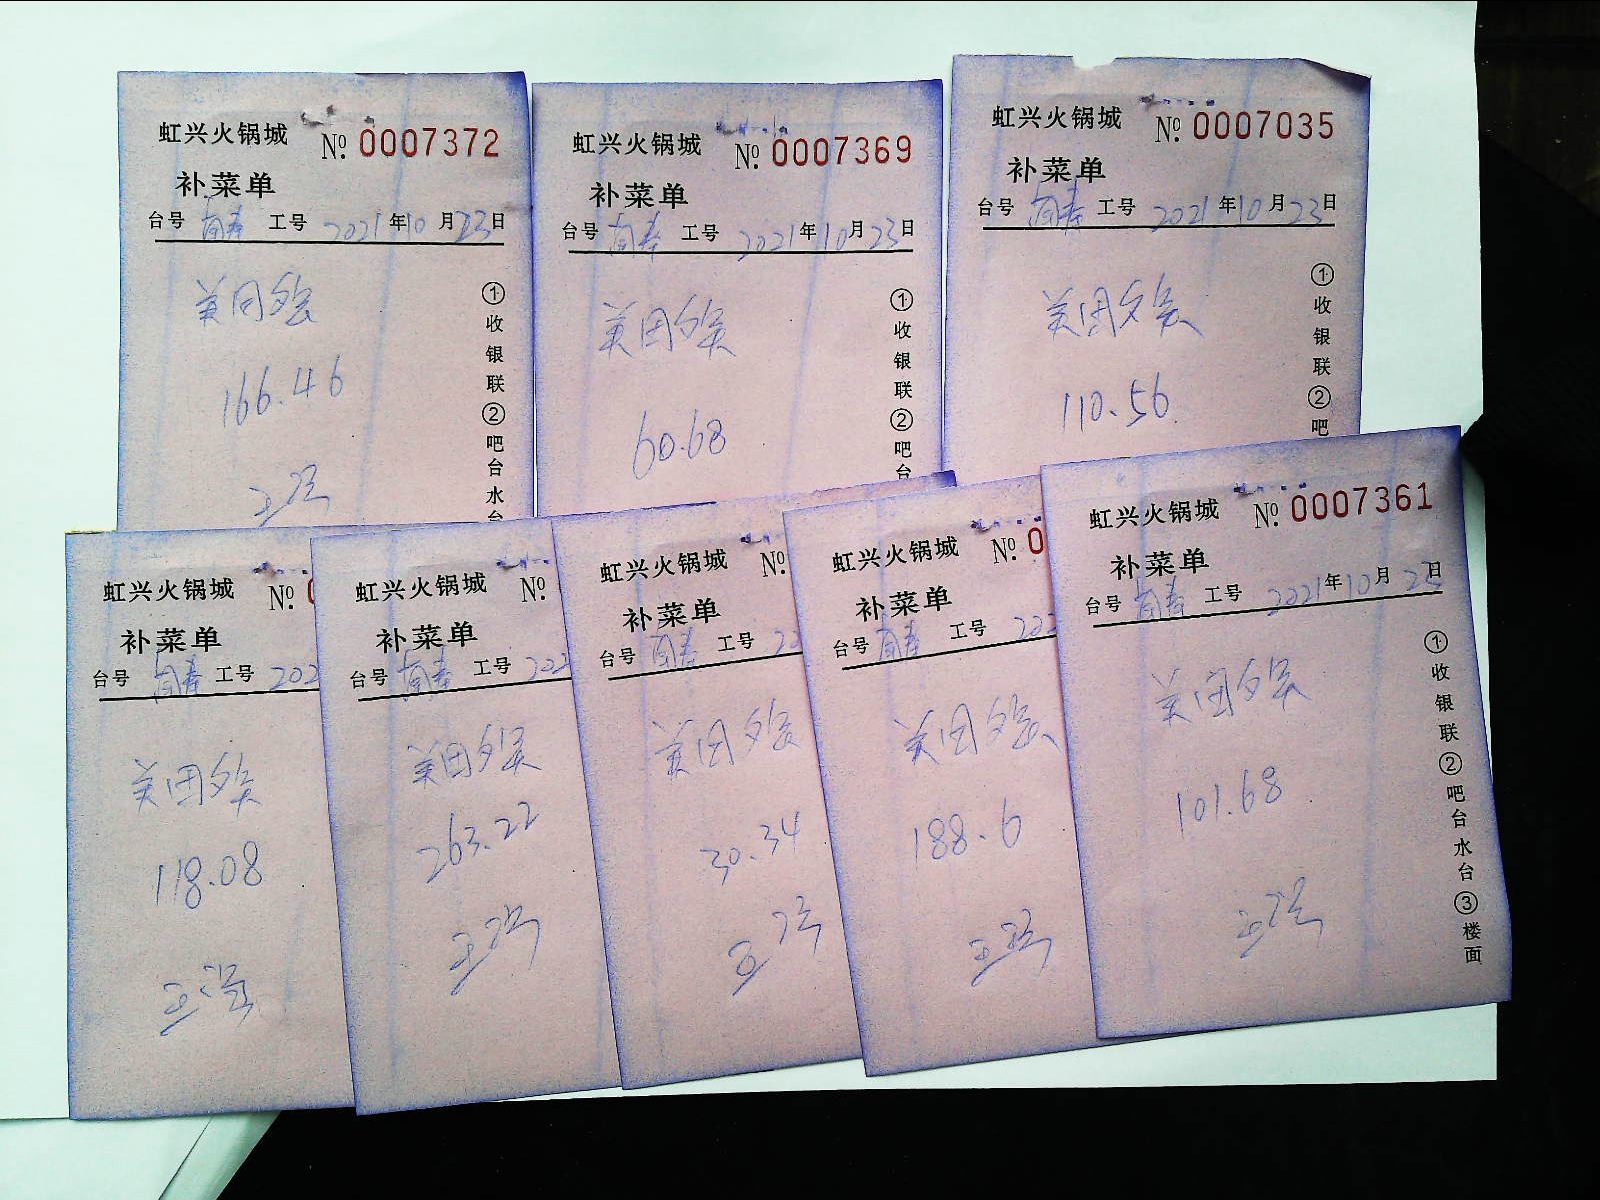 虹兴火锅城 No. 0007372
补菜单
台号 南寿 工号 2021年10月23日
美团外卖
166.46
王强
①收银联②吧台水台
虹兴火锅城 No. 0007369
补菜单
台号 南寿 工号 2021年10月23日
美团外卖
60.68
①收银联②吧台
虹兴火锅城 No. 0007035
补菜单
台号 南寿 工号 2021年10月23日
美团外卖
110.56
①收银联②吧
虹兴火锅城 No.
补菜单
台号 南寿 工号 202
美团外卖
118.08
王强
虹兴火锅城 No.
补菜单
台号 南寿 工号 202
美团外卖
263.22
王强
虹兴火锅城 No.
补菜单
台号 南寿 工号 20
美团外卖
30.34
王强
虹兴火锅城 No. 0
补菜单
台号 南寿 工号 202
美团外卖
188.6
王强
虹兴火锅城 No. 0007361
补菜单
台号 南寿 工号 2021年10月23日
美团外卖
101.68
王强
①收银联②吧台水台③楼面